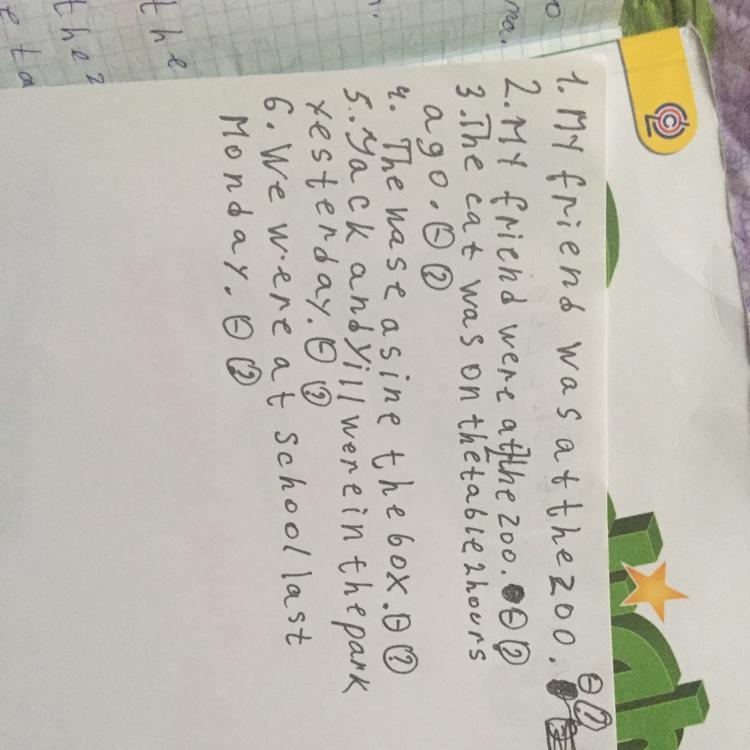 1. My friend was at the zoo. ⊖ ?
2. My friend were at the zoo. ⊖ ?
3. The cat was on the table 2 hours
ago. ⊖ ?
4. The nase asine the box. ⊖ ?
5. Yack and Yill were in the park
yesterday. ⊖ ?
6. We were at school last
Monday. ⊖ ?
the
the